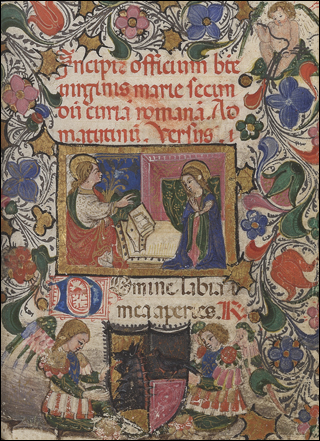 Incipit officium bte
uirginis marie secun
dū curiā romanā. Ad
matutinū. Versus i
Domine labia
mea aperies. R